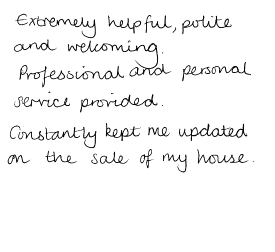 Extremely helpful, polite
and welcoming.
Professional and personal
service provided.
Constantly kept me updated
on the sale of my house.